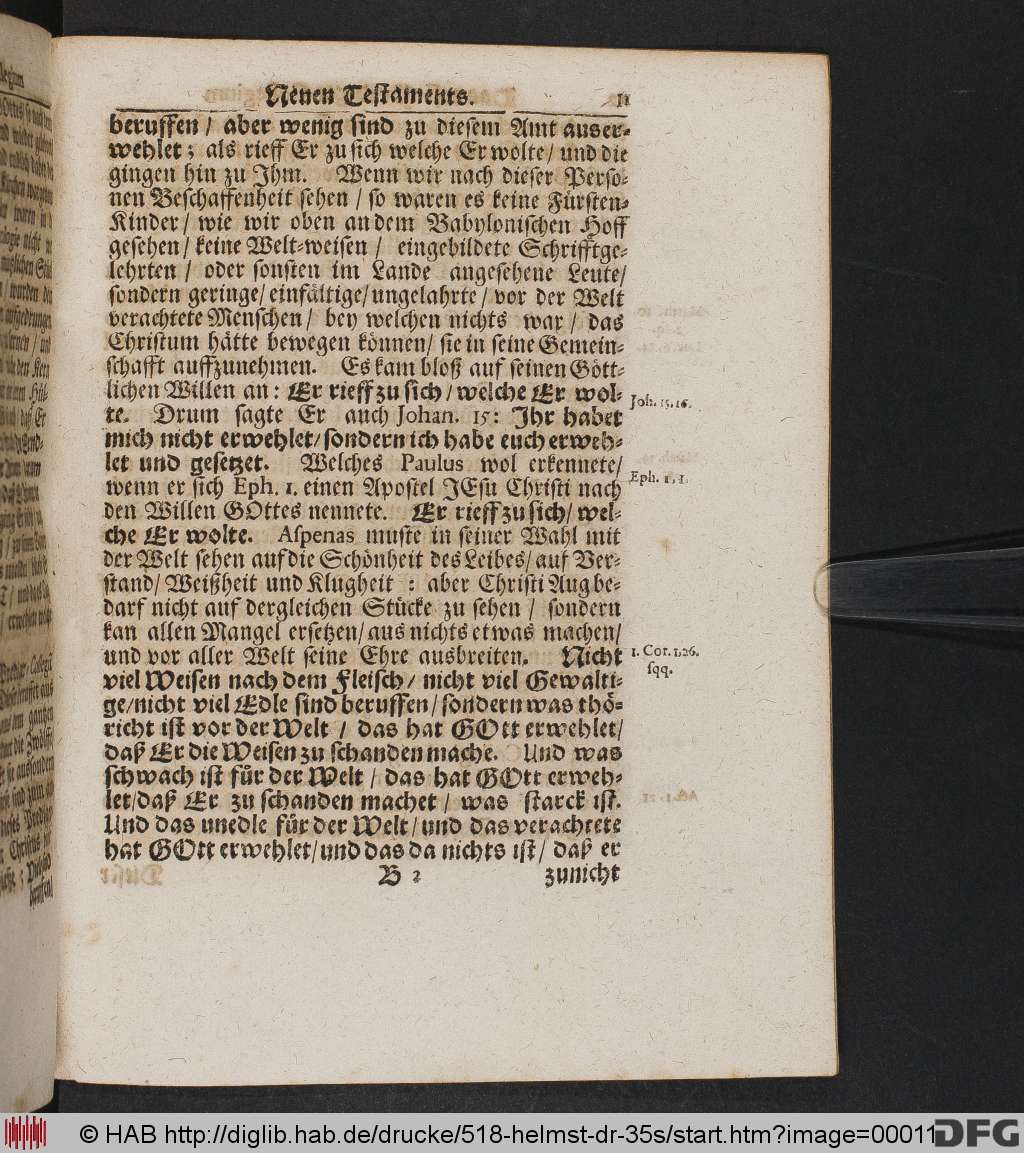 Neuen Testaments. 11
beruffen / aber wenig sind zu diesem Amt auser-
wehlet; als rieff Er zu sich welche Er wolte / und die
gingen hin zu Ihm. Wenn wir nach dieser Perso-
nen Beschaffenheit sehen / so waren es keine Fürsten-
Kinder / wie wir oben an dem Babylonischen Hoff
gesehen / keine Welt-weisen / eingebildete Schrifftge-
lehrten / oder sonsten im Lande angesehene Leute /
sondern geringe / einfältige / ungelahrte / vor der Welt
verachtete Menschen / bey welchen nichts war / das
Christum hätte bewegen können / sie in seine Gemein-
schafft auffzunehmen. Es kam bloß auf seinen Gött-
lichen Willen an: Er rieff zu sich / welche Er wol-
te. Drum sagte Er auch Johan. 15: Ihr habet
Joh. 15, 16.
mich nicht erwehlet / sondern ich habe euch erweh-
let und gesetzet. Welches Paulus wol erkennete /
wenn er sich Eph. 1. einen Apostel JEsu Christi nach
Eph. 1, 1.
den Willen GOttes nennete. Er rieff zu sich / wel-
che Er wolte. Aspenas muste in seiner Wahl mit
der Welt sehen auf die Schönheit des Leibes / auf Ver-
stand / Weißheit und Klugheit : aber Christi Aug be-
darf nicht auf dergleichen Stücke zu sehen / sondern
kan allen Mangel ersetzen / aus nichts etwas machen /
und vor aller Welt seine Ehre ausbreiten. Nicht
1. Cor. 1, 26.
sqq.
viel Weisen nach dem Fleisch / nicht viel Gewalti-
ge / nicht viel Edle sind beruffen / sondern was thö-
richt ist vor der Welt / das hat GOtt erwehlet /
daß Er die Weisen zu schanden mache. Und was
schwach ist für der Welt / das hat GOtt erweh-
let / daß Er zu schanden machet / was starck ist.
Und das unedle für der Welt / und das verachtete
hat GOtt erwehlet / und das da nichts ist / daß er
B 2 zunicht
© HAB http://diglib.hab.de/drucke/518-helmst-dr-35s/start.htm?image=00011
DFG